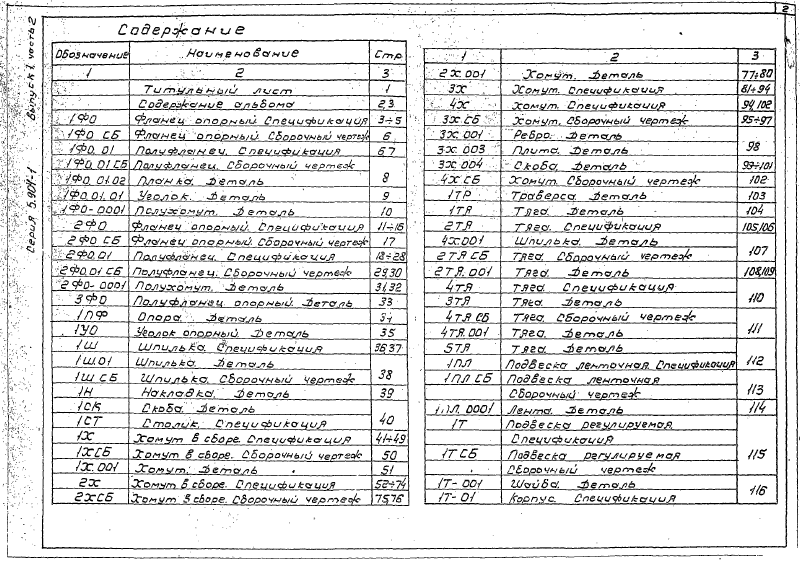 2
Серия 5.904-1 Выпуск 1, часть 2
Содержание
Обозначение Наименование Стр
1 2 3
Титульный лист 1
Содержание альбома 2,3
1ФО Фланец опорный. Спецификация 3÷5
1ФО СБ Фланец опорный. Сборочный чертеж 6
1ФО.01 Полуфланец. Спецификация 6,7
1ФО.01 СБ Полуфланец. Сборочный чертеж
1ФО.01.02 Планка. Деталь 8
1ФО.01.01 Уголок. Деталь 9
1ФО-0001 Полухомут. Деталь 10
2ФО Фланец опорный. Спецификация 11÷16
2ФО СБ Фланец опорный. Сборочный чертеж 17
2ФО.01 Полуфланец. Спецификация 18÷28
2ФО.01 СБ Полуфланец. Сборочный чертеж 29,30
2ФО-0001 Полухомут. Деталь 31,32
3ФО Полуфланец опорный. Деталь 33
1ПФ Опора. Деталь 34
1УО Уголок опорный. Деталь 35
1Ш Шпилька. Спецификация 36,37
1Ш.01 Шпилька. Деталь
1Ш СБ Шпилька. Сборочный чертеж 38
1Н Накладка. Деталь 39
1СК Скоба. Деталь
1СТ Столик. Спецификация 40
1Х Хомут в сборе. Спецификация 41÷49
1ХСБ Хомут в сборе. Сборочный чертеж 50
1Х.001 Хомут. Деталь 51
2Х Хомут в сборе. Спецификация 52÷74
2ХСБ Хомут в сборе. Сборочный чертеж 75,76
1 2 3
2Х.001 Хомут. Деталь 77÷80
3Х Хомут. Спецификация 81÷94
4Х Хомут. Спецификация 94,102
3Х СБ Хомут. Сборочный чертеж 95÷97
3Х.001 Ребро. Деталь
3Х.003 Плита. Деталь 98
3Х.004 Скоба. Деталь 99÷101
4Х СБ Хомут. Сборочный чертеж 102
1ТР Траверса. Деталь 103
1ТЯ Тяга. Деталь 104
2ТЯ Тяга. Спецификация 105,106
4Х.001 Шпилька. Деталь
2ТЯ СБ Тяга. Сборочный чертеж 107
2ТЯ.001 Тяга. Деталь 108,109
4ТЯ Тяга. Спецификация
3ТЯ Тяга. Деталь 110
4ТЯ СБ Тяга. Сборочный чертеж
4ТЯ.001 Тяга. Деталь 111
5ТЯ Тяга. Деталь
1ПЛ Подвеска ленточная. Спецификация 112
1ПЛ СБ Подвеска ленточная
Сборочный чертеж 113
1ПЛ.0001 Лента. Деталь 114
1Т Подвеска регулируемая
Спецификация
1Т СБ Подвеска регулируемая 115
Сборочный чертеж
1Т-001 Шайба. Деталь
1Т-01 Корпус. Спецификация 116